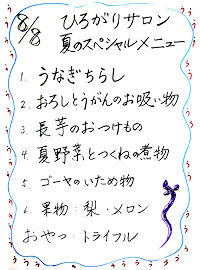 8/8 ひろがりサロン
夏のスペシャルメニュー
1. うなぎちらし
2. おろしとうがんのお吸い物
3. 長芋のおつけもの
4. 夏野菜とつくねの煮物
5. ゴーヤのいため物
6. 果物：梨・メロン
おやつ：トライフル